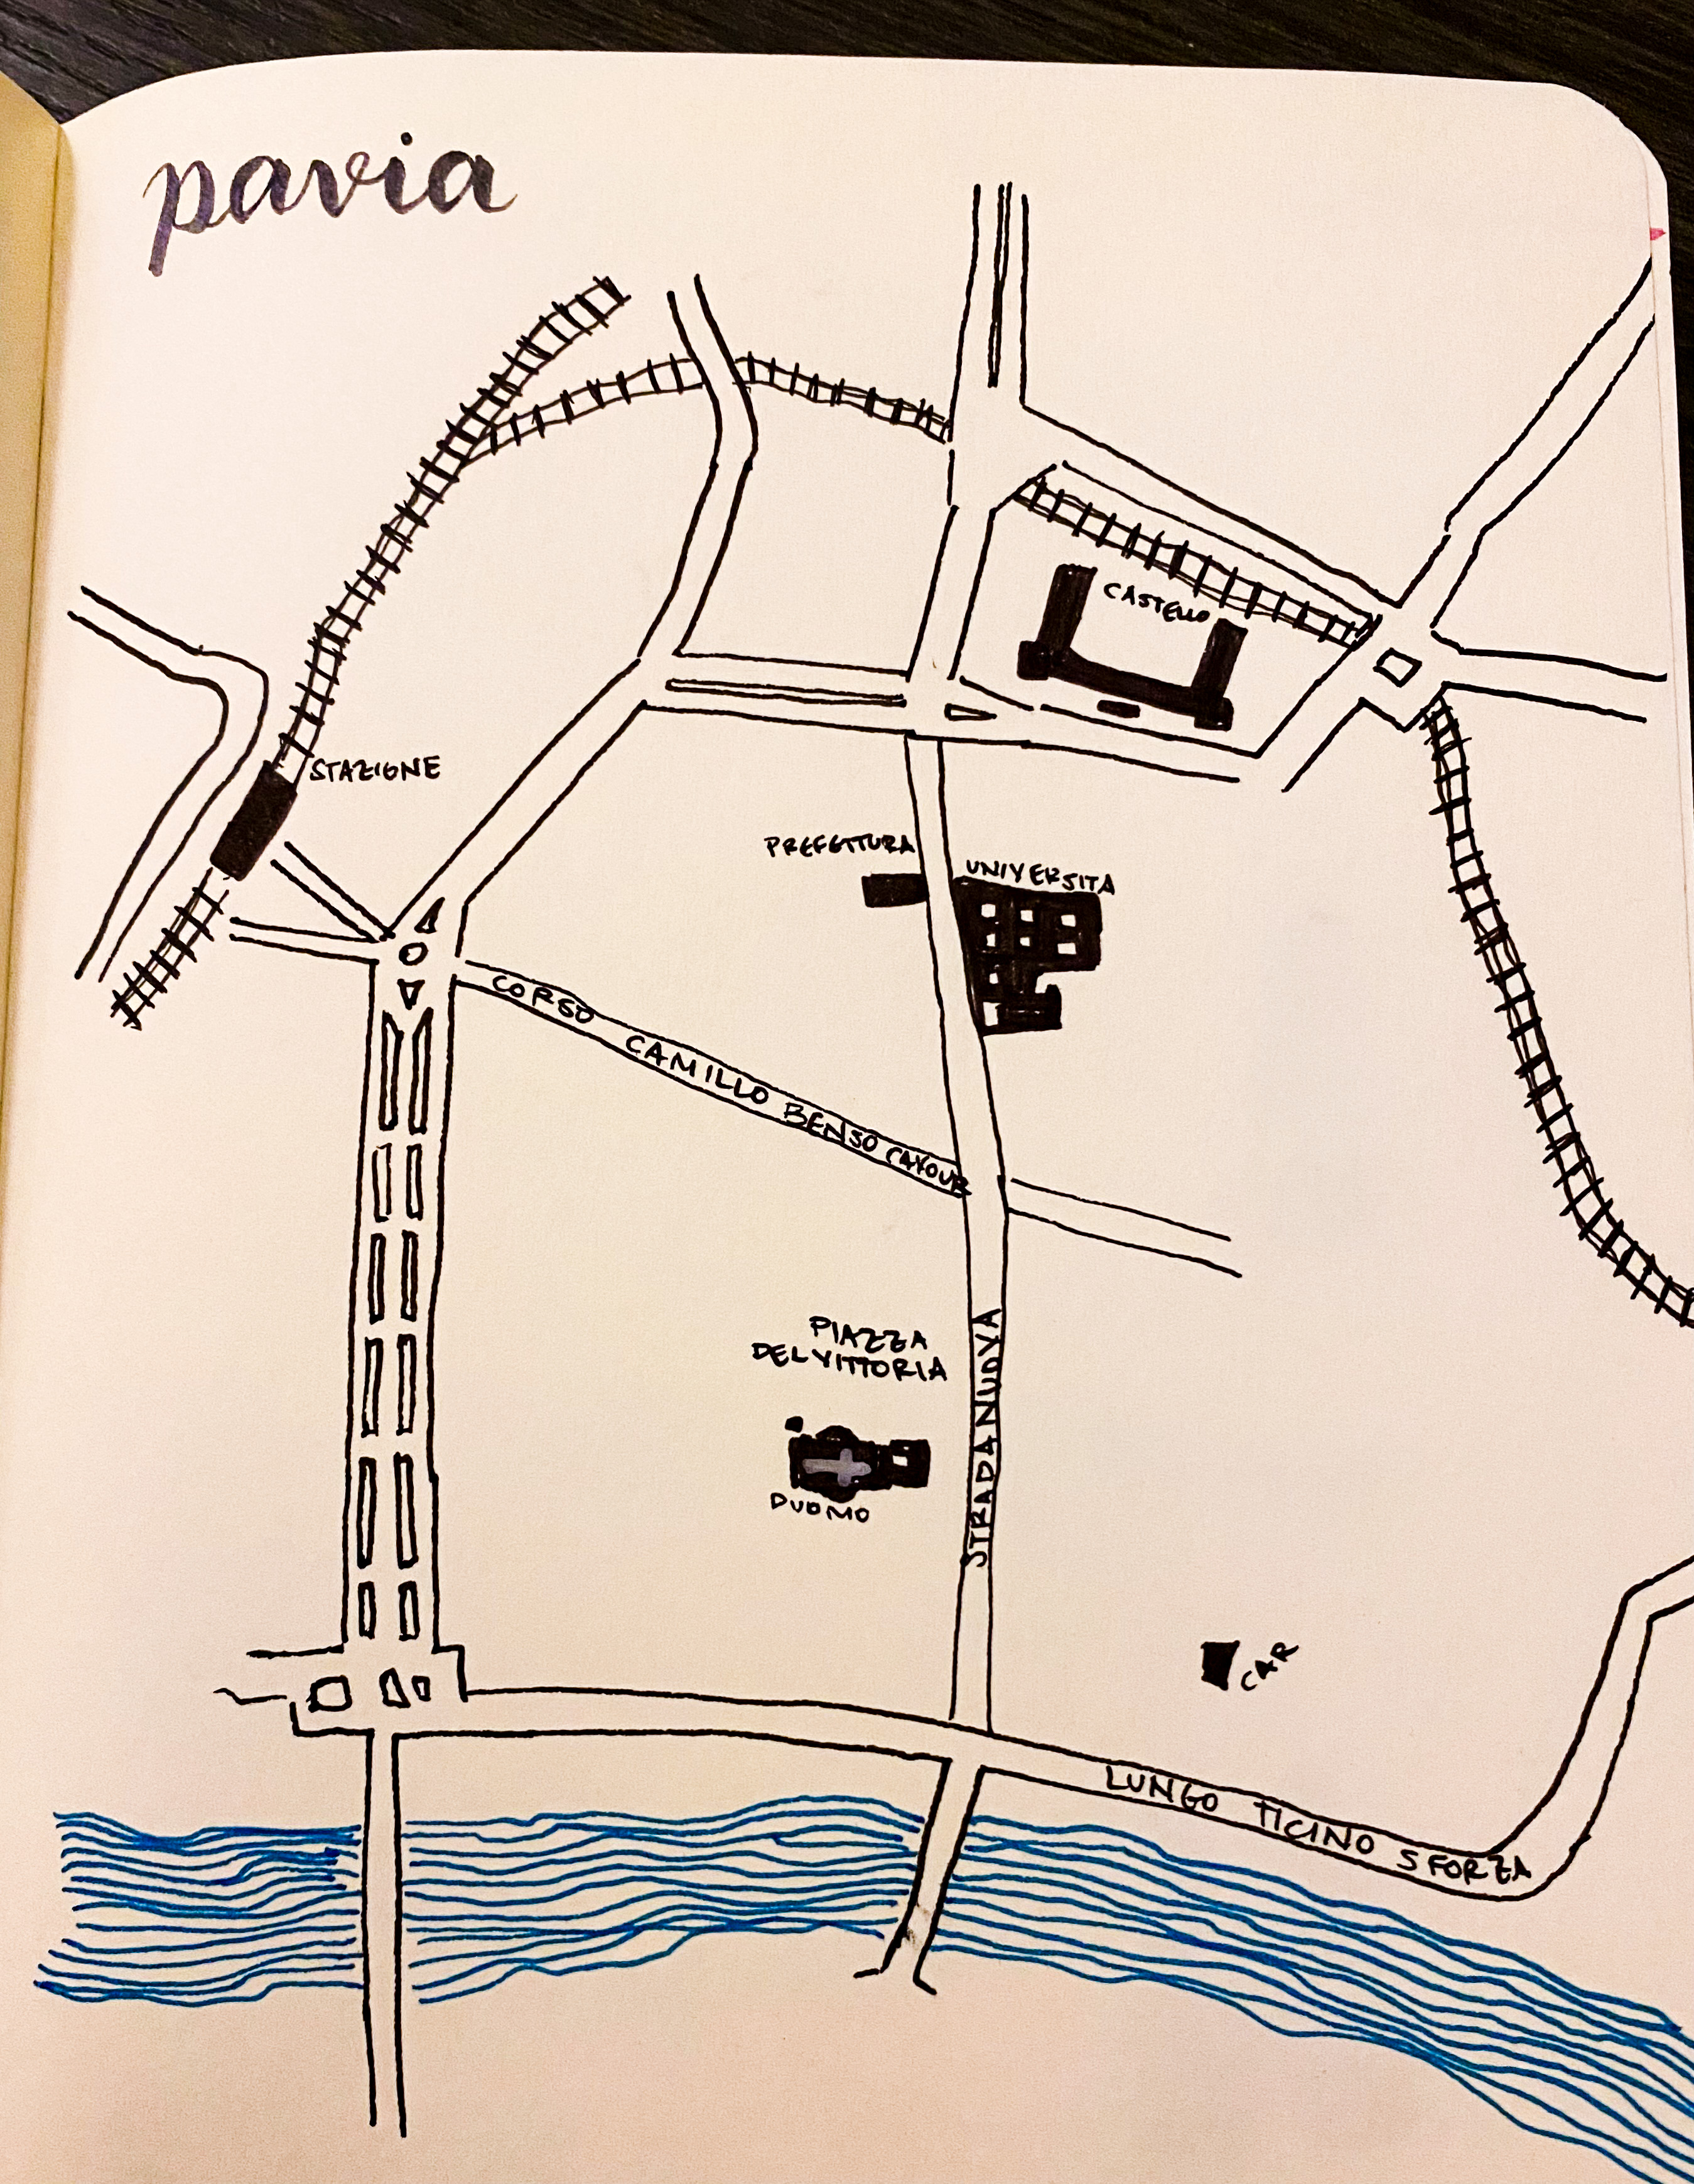 pavia
CASTELLO
STAZIONE
PREFETTURA
UNIVERSITA
CORSO CAMILLO BENSO CAVOUR
PIAZZA
DEL VITTORIA
STRADA NUOVA
DUOMO
CAR
LUNGO TICINO SFORZA